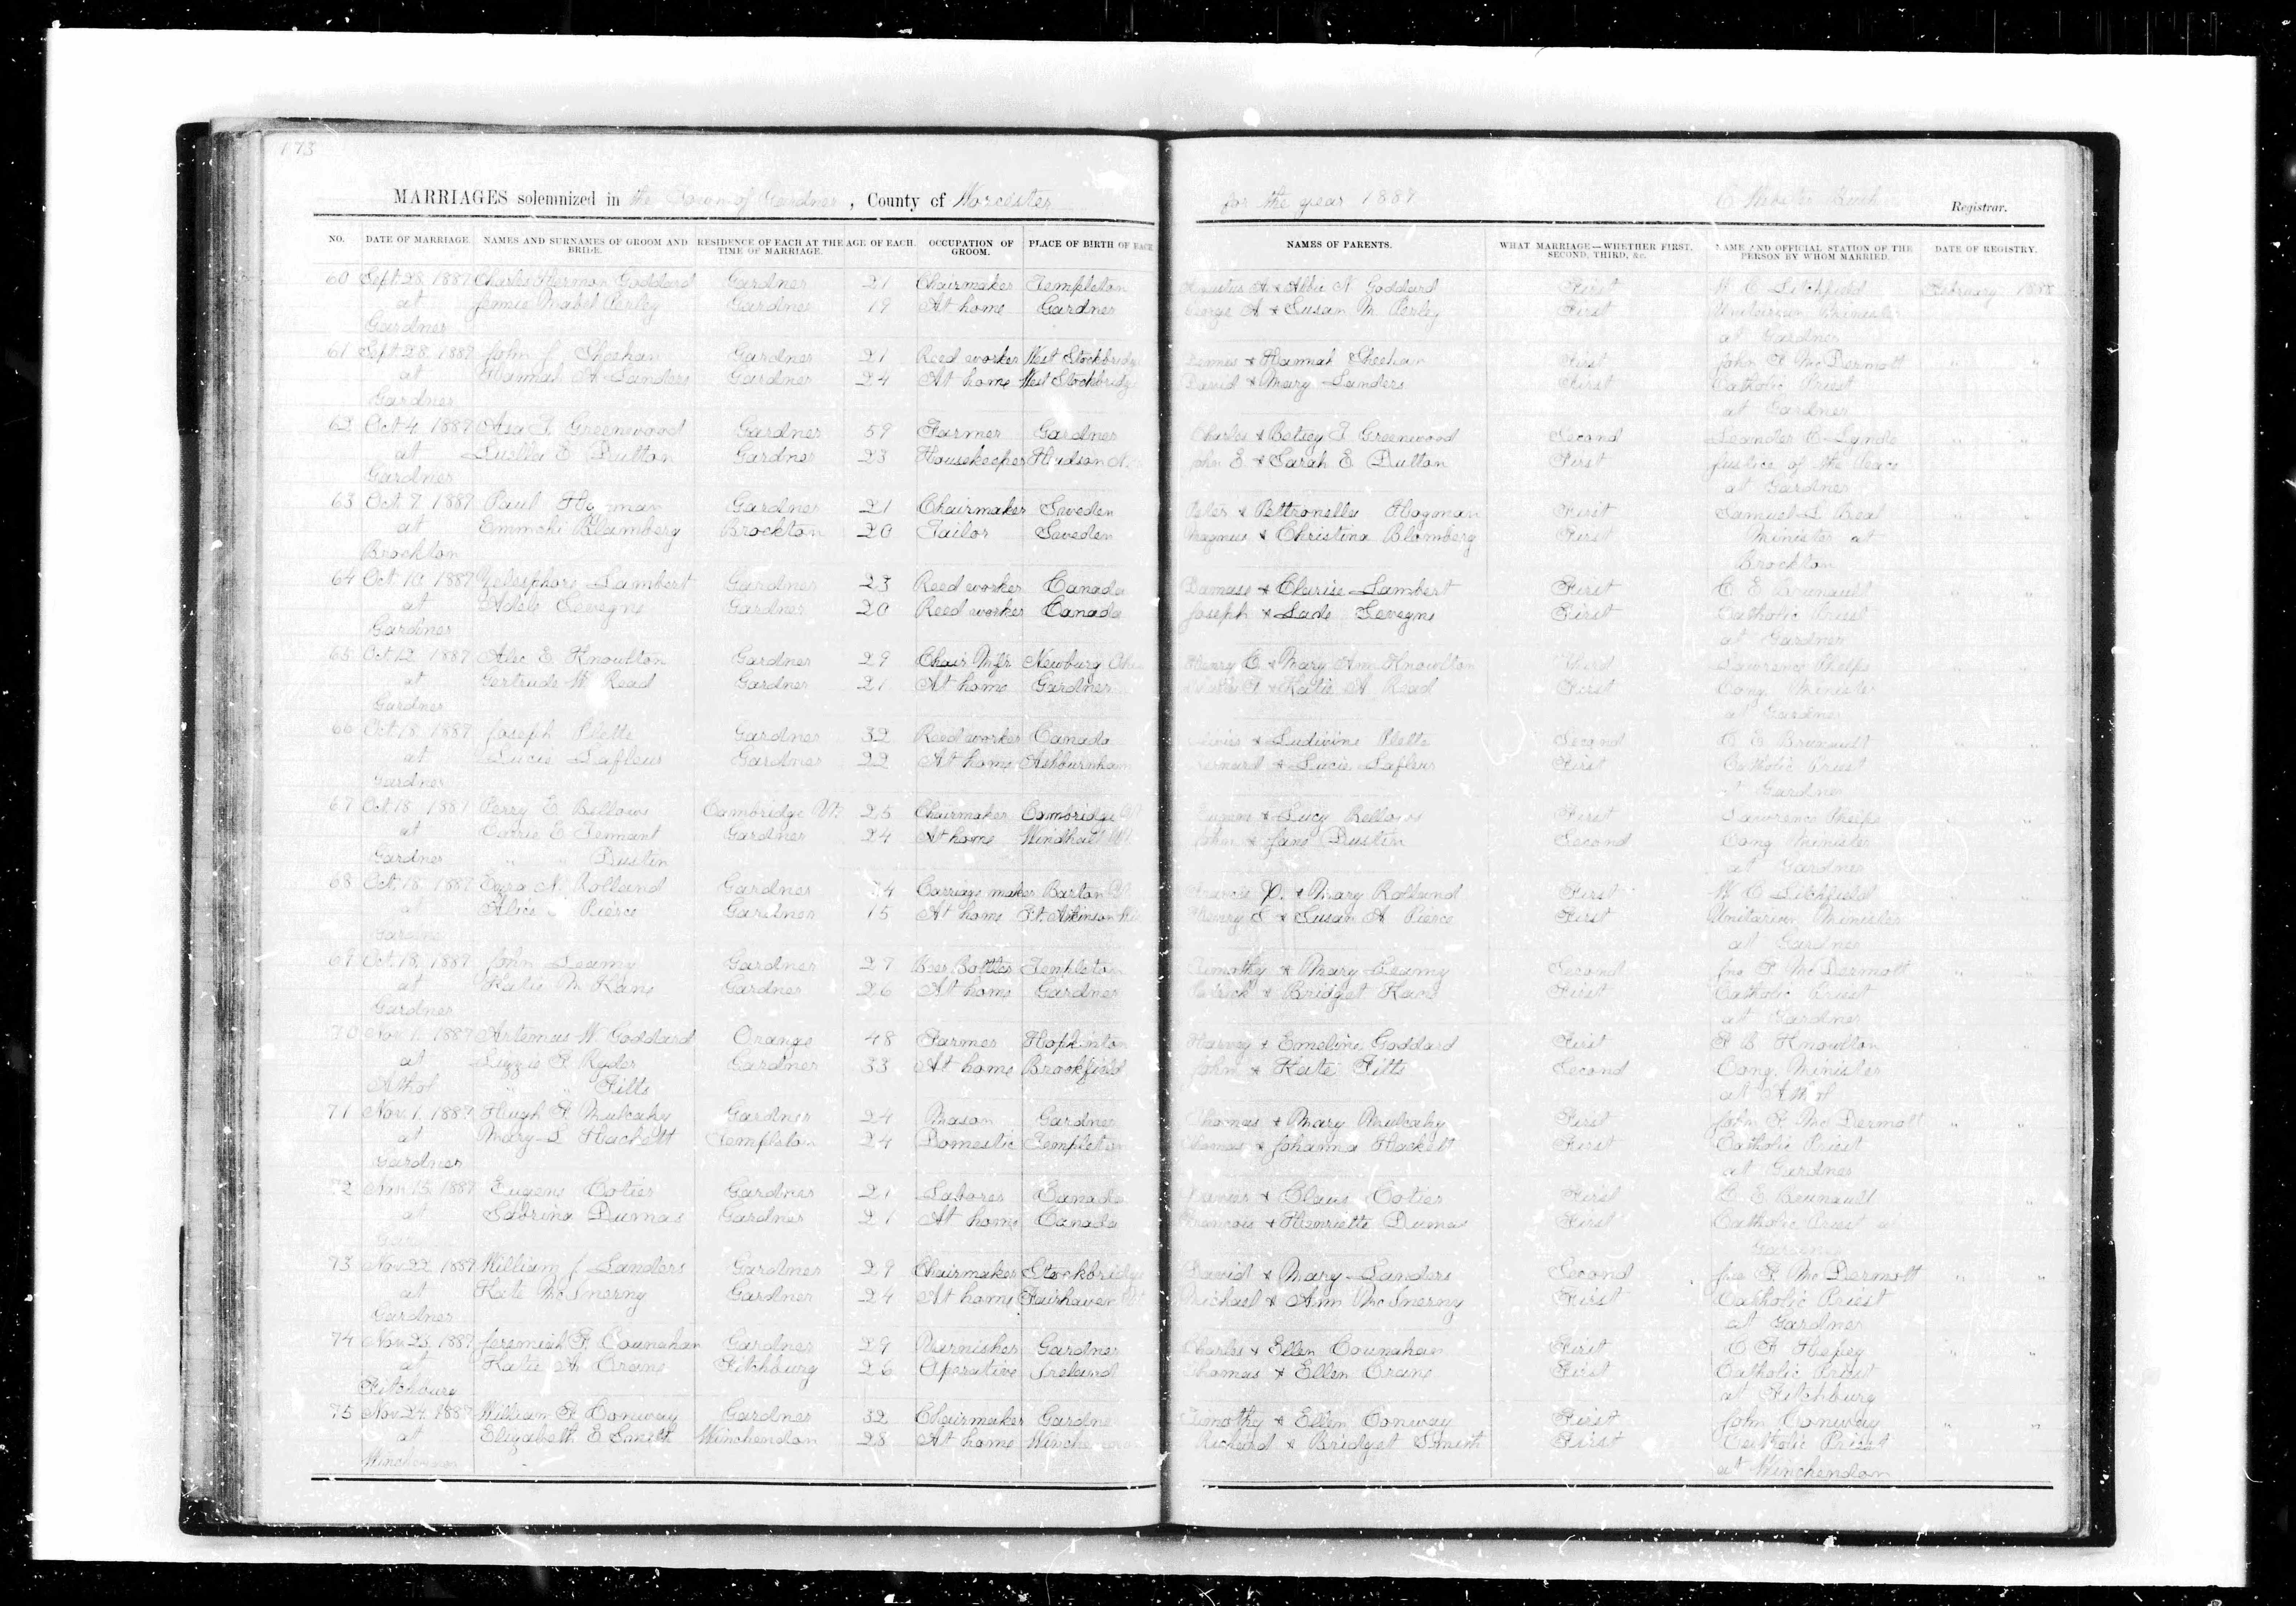 173
MARRIAGES solemnized in the Town of Gardner, County of Worcester for the year 1887 Registrar.
NO. DATE OF MARRIAGE. NAMES AND SURNAMES OF GROOM AND BRIDE. RESIDENCE OF EACH AT THE TIME OF MARRIAGE. AGE OF EACH. OCCUPATION OF GROOM. PLACE OF BIRTH OF EACH NAMES OF PARENTS. WHAT MARRIAGE—WHETHER FIRST, SECOND, THIRD, &c. NAME AND OFFICIAL STATION OF THE PERSON BY WHOM MARRIED. DATE OF REGISTRY.
60 Sept 28, 1887 Charles Herman Goddard Gardner 21 Chairmaker Templeton Augustus A & Abbie N Goddard First W C Litchfield February 1888
at Jennie Mabel Perley Gardner 19 At home Gardner George A & Susan M Perley First Unitarian Minister
Gardner at Gardner
61 Sept 28, 1887 John J. Sheehan Gardner 21 Reed worker West Stockbridge Dennis & Hannah Sheehan First John P. McDermott " "
at Hannah A Sanders Gardner 24 At home West Stockbridge David & Mary Sanders First Catholic Priest
Gardner at Gardner
62 Oct 4, 1887 Asa T. Greenwood Gardner 59 Farmer Gardner Charles & Betsey T Greenwood Second Leander C Lynde " "
at Luella E Dutton Gardner 23 Housekeeper Hudson N. John E & Sarah E Dutton First Justice of the Peace
Gardner at Gardner
63 Oct 7, 1887 Paul Gardner 21 Chairmaker Sweden Peter & Pettronella Hogman First Samuel L Beal " "
at Blomberg Brockton 20 Tailor Sweden Magnus & Christina Blomberg First Minister at
Brockton Brockton
64 Oct. 10, 1887 Telesphore Lambert Gardner 23 Reed worker Canada Damase & Clarise Lambert First C E Brunault " "
at Adele Gardner 20 Reed worker Canada Joseph & First Catholic Priest
Gardner at Gardner
65 Oct 12, 1887 Alec E Knowlton Gardner 29 Chair Mfr Newburg Henry C. & Mary Ann Knowlton Third Lawrence Phelps
at Gertrude W Read Gardner 21 At home Gardner & Katie A Read First Cong. Minister
Gardner at Gardner
66 Oct 18, 1887 Joseph Gardner 32 Reed worker Canada & Ludivine Second C E Brunault " "
at Lucie Lafleur Gardner 22 At home Ashburnham & Lucie Lafleur First Catholic Priest
Gardner at Gardner
67 Oct 18, 1887 Perry E Bellows Cambridge Vt 25 Chairmaker Cambridge Vt Eugene & Lucy Bellows First Lawrence Phelps " "
at Carrie E Tennant Gardner 24 At home Windhall Vt John & Jane Dustin Second Cong Minister
Gardner " " Dustin at Gardner
68 Oct. 18, 1887 Ezra N. Rolland Gardner Carriage maker Barton Vt Francis P. & Mary Rolland First W C Litchfield
at Alice Pierce Gardner 15 At home Ft. Atkinson Henry & Susan A Pierce First Unitarian Minister
Gardner at Gardner
69 Oct. 18, 1887 John Leamy Gardner 27 Beer Bottler Templeton Timothy & Mary Leamy Second Jno P. McDermott " "
at Katie M Kane Gardner 26 At home Gardner Patrick & Bridget Kane First Catholic Priest
Gardner at Gardner
70 Nov 1, 1887 Artemus W Goddard Orange 48 Farmer Hopkinton Harvey & Emeline Goddard First Knowlton
at Lizzie F Ryder Gardner 33 At home Brookfield John & Kate Fitts Second Cong. Minister
Athol " " Fitts at Athol
71 Nov 1, 1887 Hugh F. Mulcahy Gardner 24 Mason Gardner Thomas & Mary Mulcahy First John P. McDermott " "
at Mary L Hackett Templeton 24 Domestic Templeton Thomas & Johanna Hackett First Catholic Priest
Gardner at Gardner
72 Nov 15, 1887 Eugene Cotier Gardner 21 Laborer Canada & Cotier First C. E Brunault "
at Sabrina Dumas Gardner 21 At home Canada Francois & Henriette Dumas First Catholic Priest at
Gardner Gardner
73 Nov 22, 1887 William J. Sanders Gardner 29 Chairmaker Stockbridge David & Mary Sanders Second Jno P. McDermott " "
at Kate McInerny Gardner 24 At home Fairhaven Michael & Ann McInerny First Catholic Priest
Gardner at Gardner
74 Nov 23, 1887 Jeremiah F. Counahan Gardner 29 Varnisher Gardner Charles & Ellen Counahan First " "
at Katie A. Crane Fitchburg 26 Operative Ireland Thomas & Ellen Crane First Catholic Priest
Fitchburg at Fitchburg
75 Nov 24, 1887 William F. Conway Gardner 32 Chairmaker Gardner Timothy & Ellen Conway First John Conway " "
at Elizabeth E Smith Winchendon 28 At home Winchendon Richard & Bridget Smith First Catholic Priest
Winchendon at Winchendon